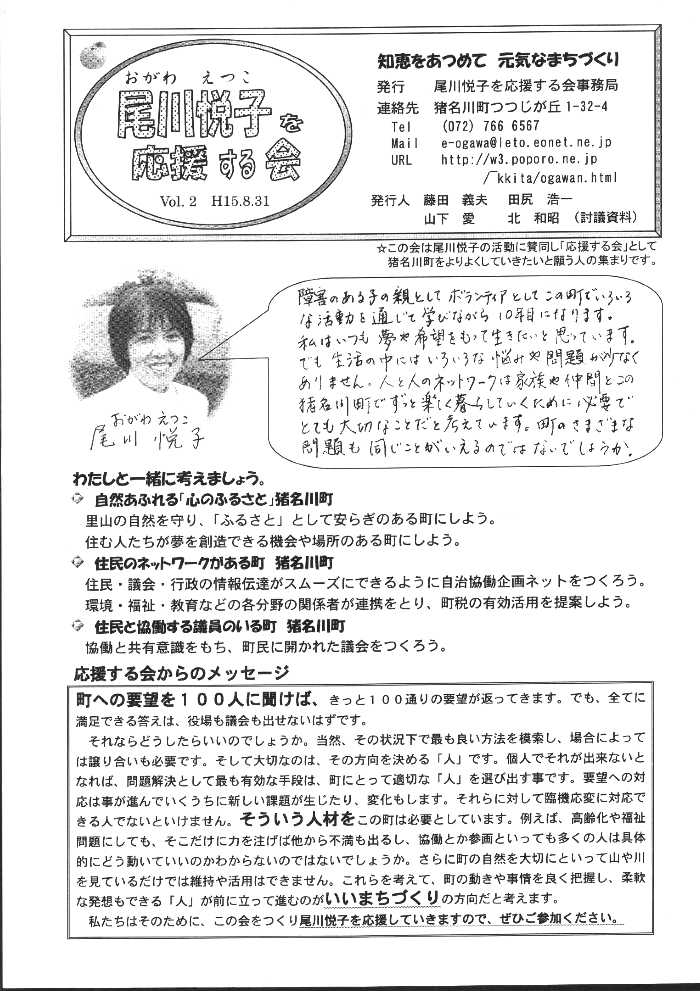 おがわ えつこ
尾川悦子を
応援する会
Vol. 2 H15.8.31
知恵をあつめて 元気なまちづくり
発行 尾川悦子を応援する会事務局
連絡先 猪名川町つつじが丘1-32-4
Tel (072) 766 6567
Mail e-ogawa@leto.eonet.ne.jp
URL http://w3.poporo.ne.jp
/~kkita/ogawan.html
発行人 藤田 義夫 田尻 浩一
山下 愛 北 和昭 (討議資料)
☆この会は尾川悦子の活動に賛同し「応援する会」として
猪名川町をよりよくしていきたいと願う人の集まりです。
障害のある子の親として ボランティアとして この町でいろいろ
な活動を通じて学びながら 10年目になります。
私はいつも 夢や希望をもって生きたいと思っています。
でも 生活の中には いろいろな 悩みや問題が少なく
ありません。人と人のネットワークは家族や仲間とこの
猪名川町で ずっと楽しく暮らしていくために 必要で
とても大切なことだと考えています。町のさまざまな
問題も 同じことがいえるのではないでしょうか。
おがわ えつこ
尾川 悦子
わたしと一緒に考えましょう。
自然あふれる「心のふるさと」猪名川町
里山の自然を守り、「ふるさと」として安らぎのある町にしよう。
住む人たちが夢を創造できる機会や場所のある町にしよう。
住民のネットワークがある町 猪名川町
住民・議会・行政の情報伝達がスムーズにできるように自治協働企画ネットをつくろう。
環境・福祉・教育などの各分野の関係者が連携をとり、町税の有効活用を提案しよう。
住民と協働する議員のいる町 猪名川町
協働と共有意識をもち、町民に開かれた議会をつくろう。
応援する会からのメッセージ
町への要望を100人に聞けば、きっと100通りの要望が返ってきます。でも、全てに
満足できる答えは、役場も議会も出せないはずです。
それならどうしたらいいのでしょうか。当然、その状況下で最も良い方法を模索し、場合によって
は譲り合いも必要です。そして大切なのは、その方向を決める「人」です。個人でそれが出来ないと
なれば、問題解決として最も有効な手段は、町にとって適切な「人」を選び出す事です。要望への対
応は事が進んでいくうちに新しい課題が生じたり、変化もします。それらに対して臨機応変に対応で
きる人でないといけません。そういう人材をこの町は必要としています。例えば、高齢化や福祉
問題にしても、そこだけに力を注げば他から不満も出るし、協働とか参画といっても多くの人は具体
的にどう動いていいのかわからないのではないでしょうか。さらに町の自然を大切にといって山や川
を見ているだけでは維持や活用はできません。これらを考えて、町の動きや事情を良く把握し、柔軟
な発想もできる「人」が前に立って進むのがいいまちづくりの方向だと考えます。
私たちはそのために、この会をつくり尾川悦子を応援していきますので、ぜひご参加ください。